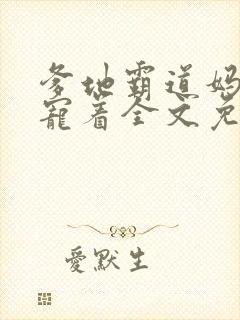 爹地霸道妈
宠着全文免
愛默生